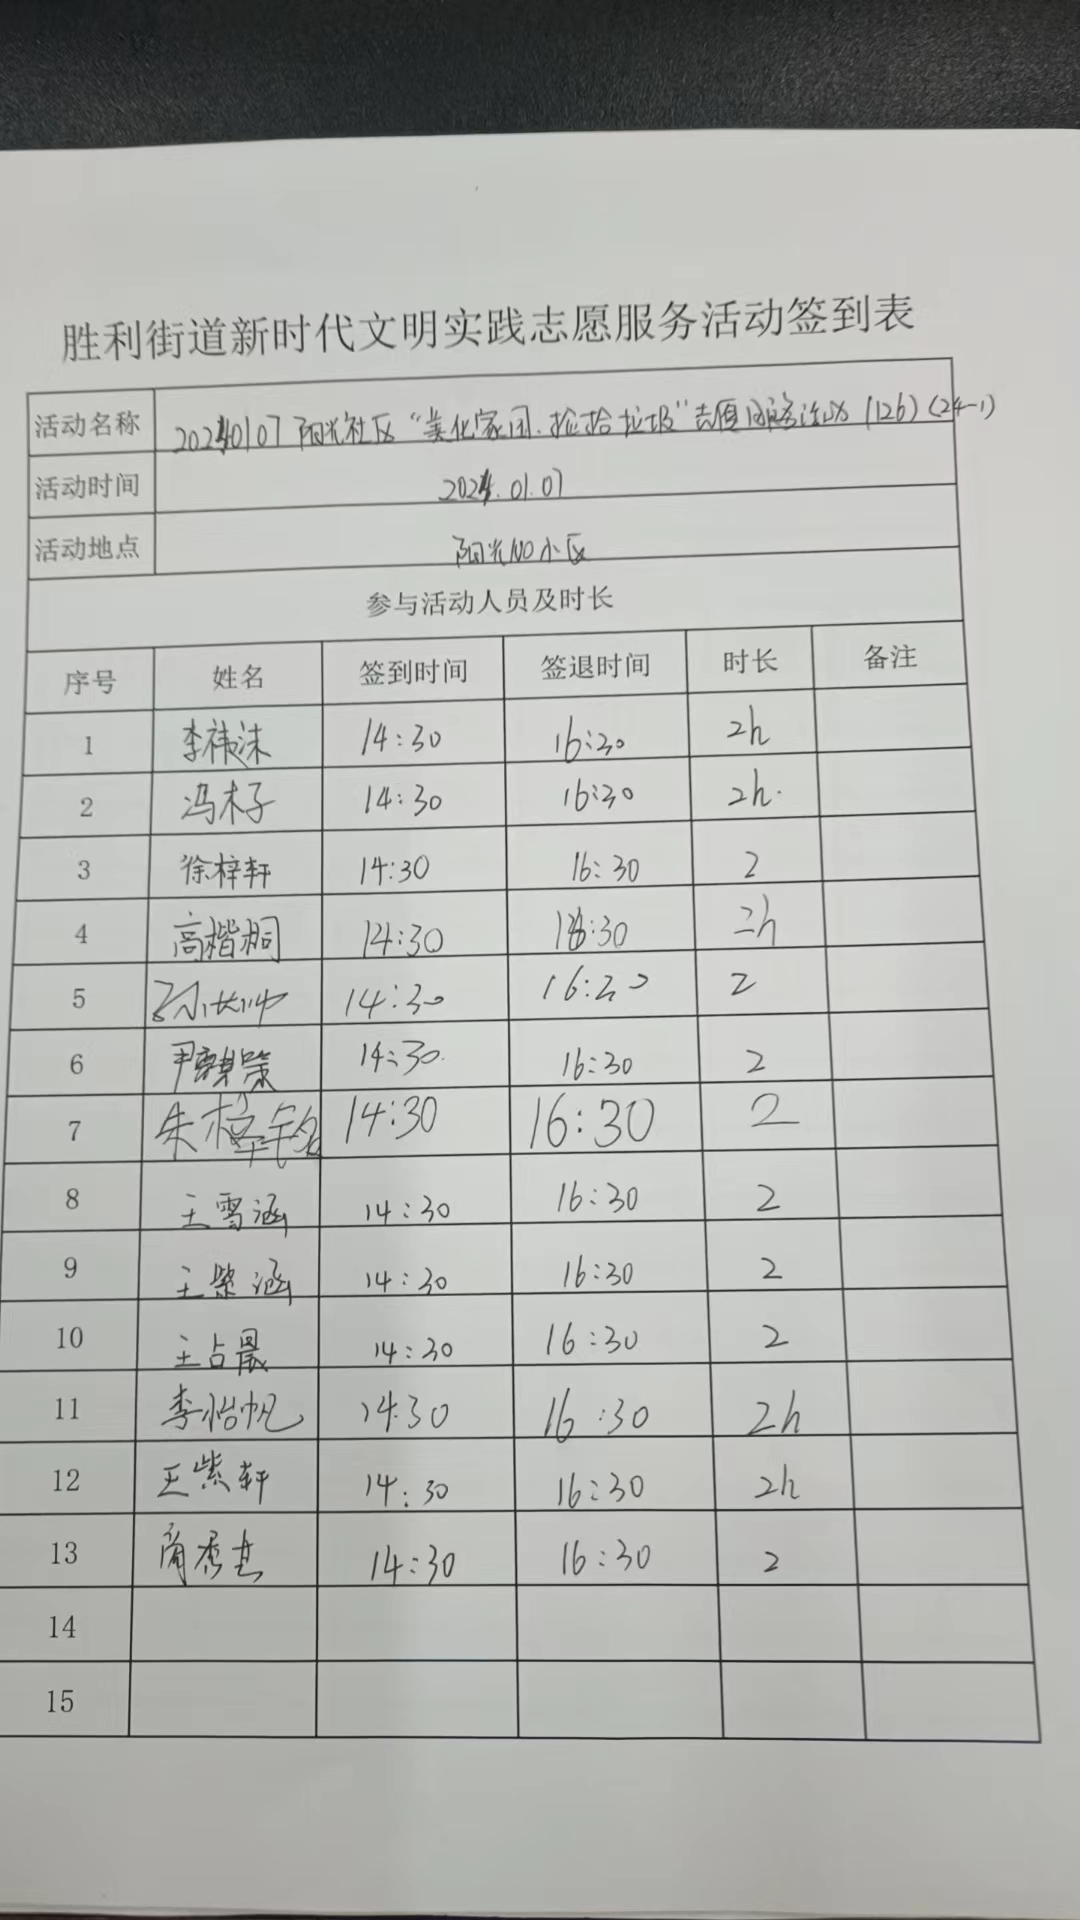 胜利街道新时代文明实践志愿服务活动签到表
活动名称 20240107 阳光社区“美化家园.捡拾垃圾”志愿服务活动(126)(24-1)
活动时间 2024.01.07
活动地点 阳光100小区
参与活动人员及时长
序号 姓名 签到时间 签退时间 时长 备注
1 李祎沫 14:30 16:30 2h
2 冯木子 14:30 16:30 2h.
3 徐梓轩 14:30 16:30 2
4 高楷桐 14:30 16:30 2h
5 14:30 16:30 2
6 尹 14:30. 16:30 2
7 朱梓铭 14:30 16:30 2
8 王雪涵 14:30 16:30 2
9 王紫涵 14:30 16:30 2
10 王占晟 14:30 16:30 2
11 李怡帆 14:30 16:30 2h
12 王紫轩 14:30 16:30 2h
13 14:30 16:30 2
14
15